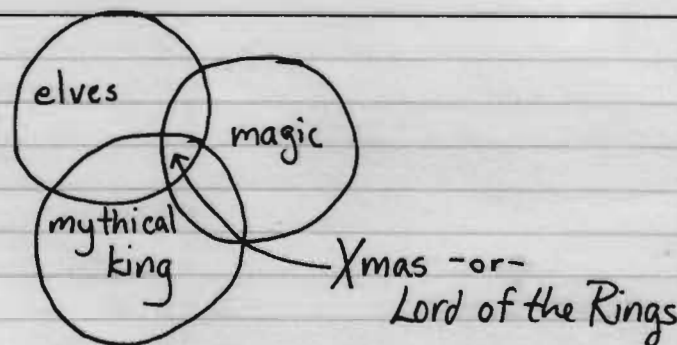 elves
magic
mythical
king
Xmas -or-
Lord of the Rings